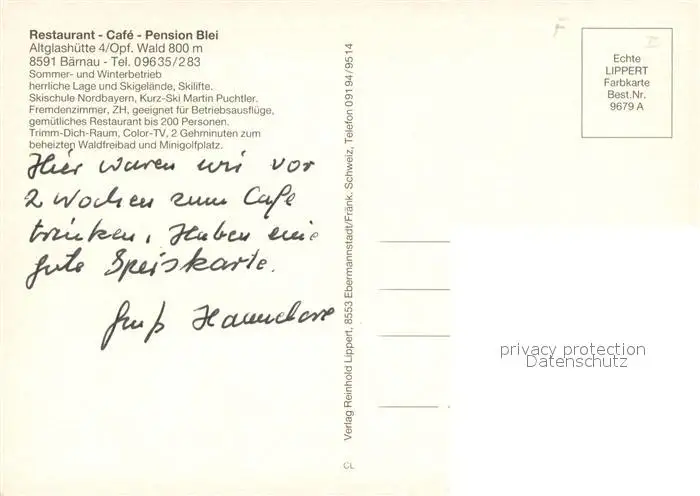 Restaurant - Café - Pension Blei
Altglashütte 4/Opf. Wald 800 m
8591 Bärnau - Tel. 09635/283
Sommer- und Winterbetrieb
herrliche Lage und Skigelände, Skilifte.
Skischule Nordbayern, Kurz-Ski Martin Puchtler.
Fremdenzimmer, ZH, geeignet für Betriebsausflüge,
gemütliches Restaurant bis 200 Personen.
Trimm-Dich-Raum, Color-TV, 2 Gehminuten zum
beheizten Waldfreibad und Minigolfplatz.
Hier waren wir vor
2 Wochen zum Cafe
trinken, Haben eine
gute Speiskarte.
Gruß Hannelore
Verlag Reinhold Lippert, 8553 Ebermannstadt/Fränk. Schweiz, Telefon 09194/9514
CL
Echte
LIPPERT
Farbkarte
Best.Nr.
9679 A
F
privacy protection
Datenschutz